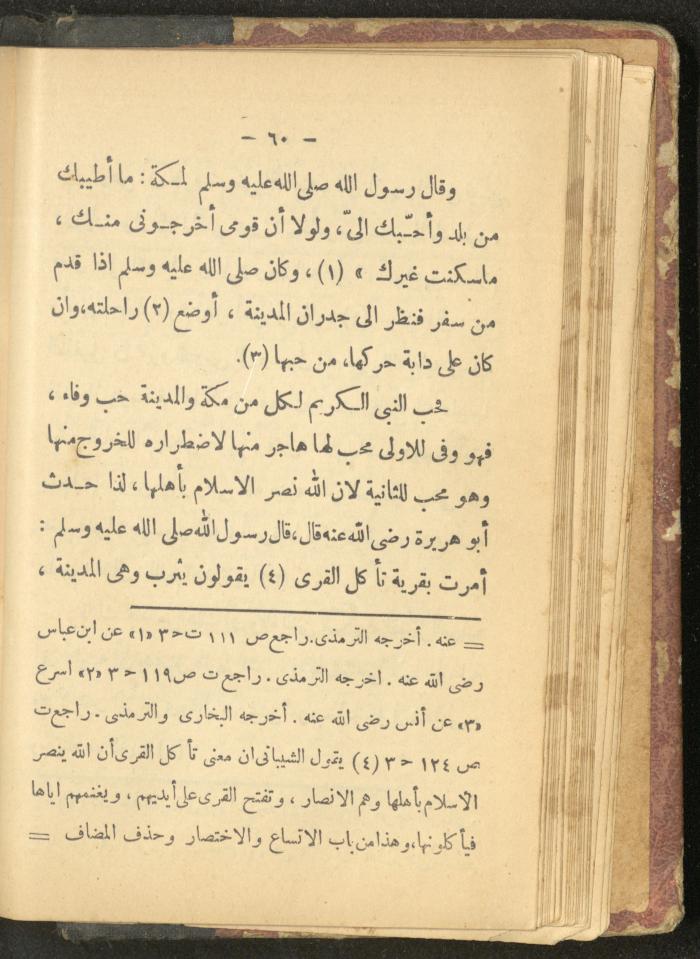 — ٦٠ —
وقال رسول الله صلى الله عليه وسلم لمكة : ما أطيبك
من بلد وأحبّك الىّ، ولولا أن قومى أخرجونى منك ،
ماسكنت غيرك » (١) ، وكان صلى الله عليه وسلم اذا قدم
من سفر فنظر الى جدران المدينة ، أوضع (٢) راحلته،وان
كان على دابة حركها، من حبها (٣).
حب النبى الكريم لكل من مكة والمدينة حب وفاء ،
فهو وفى للاولى محب لها هاجر منها لاضطراره للخروج منها
وهو محب للثانية لان الله نصر الاسلام بأهلها ، لذا حدث
أبو هريرة رضى الله عنه قال،قال رسول الله صلى الله عليه وسلم :
أمرت بقرية تأكل القرى (٤) يقولون يثرب وهى المدينة ،
= عنه . أخرجه الترمذى.راجع ص ١١١ ت ح ٣ «١» عن ابن عباس
رضى الله عنه . اخرجه الترمذى . راجع ت ص ١١٩ ح ٣ «٢» اسرع
«٣» عن أنس رضى الله عنه . أخرجه البخارى والترمذى . راجع ت
ص ١٢٤ ح ٣ (٤) يقول الشيبانى ان معنى تأكل القرى أن الله ينصر
الاسلام بأهلها وهم الانصار ، وتفتح القرى على أيديهم ، ويغنمهم اياها
فيأكلونها،وهذا من باب الاتساع والاختصار وحذف المضاف =